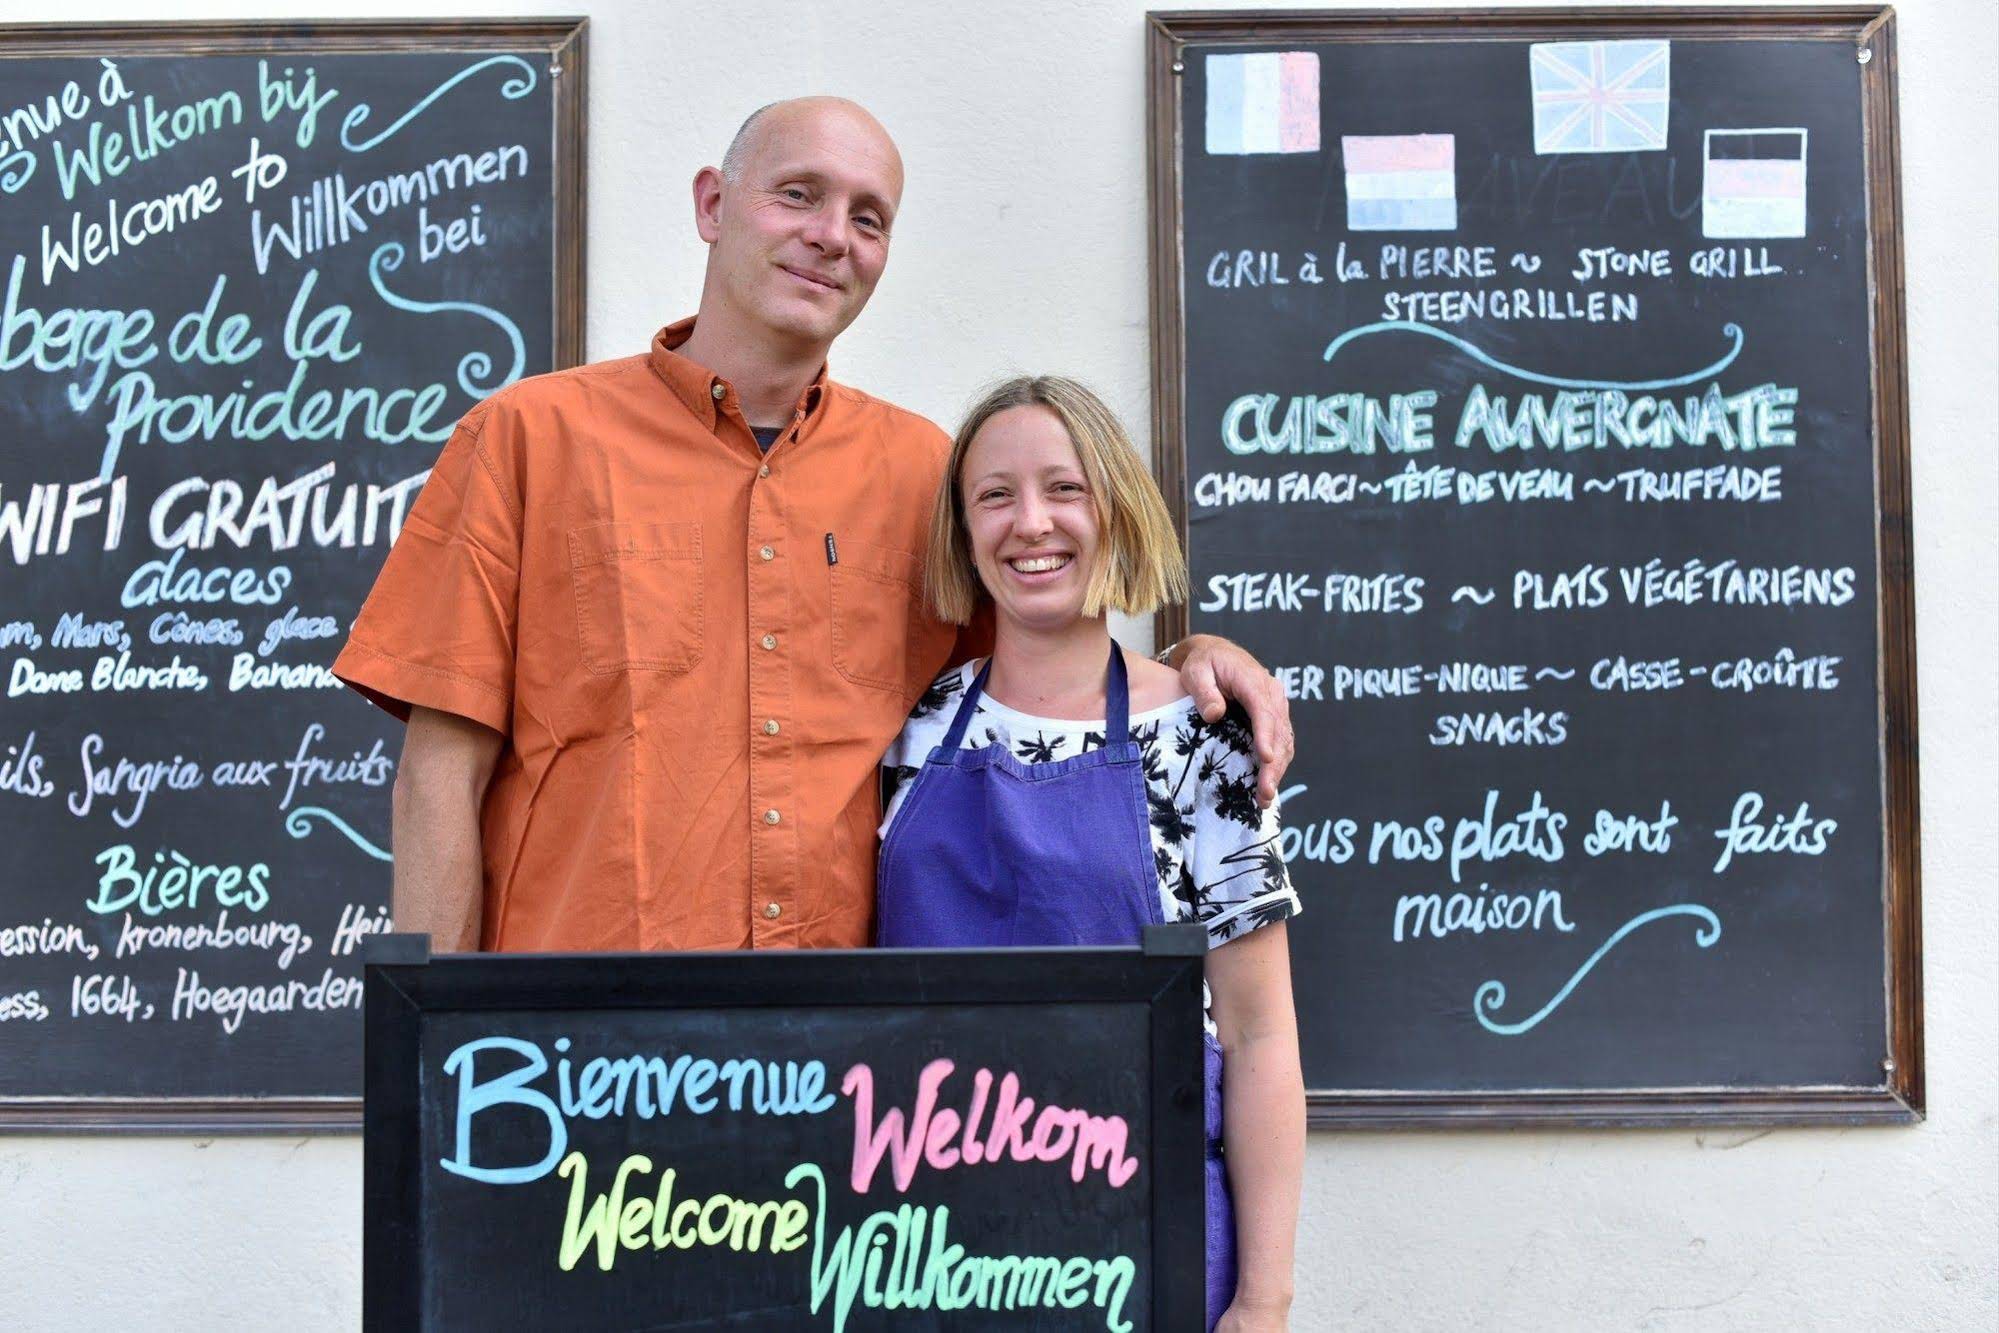 Welkom bij
Welcome to
Willkommen
bei
de la
Providence
WIFI GRATUIT
Glaces
Mars, Cônes, glace
Dame Blanche,
Sangria aux fruits
Bières
Kronenbourg,
1664, Hoegaarden
GRIL à la PIERRE ~ STONE GRILL
STEENGRILLEN
CUISINE AUVERGNATE
CHOU FARCI ~ TÊTE DE VEAU ~ TRUFFADE
STEAK-FRITES ~ PLATS VÉGÉTARIENS
PIQUE-NIQUE ~ CASSE-CROÛTE
SNACKS
Tous nos plats sont faits
maison
Bienvenue Welkom
Welcome Willkommen